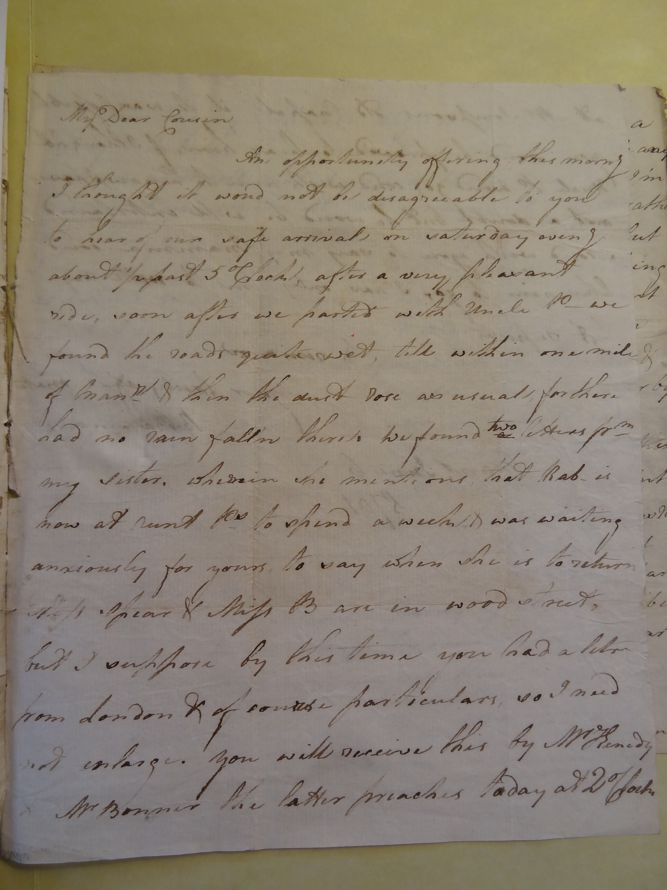 My Dear Cousin
An opportunity offering this morng
I thought it woud not be disagreeable to you
to hear of our safe arrival on saturday eveng
about 1/2 past 5 oClock, after a very pleasant
ride, soon after we parted with Uncle P— we
found the roads quite wet, till within one mile
of & then the dust rose as usual, for there
had no rain fall'n there. We found two letters frm
my sister, wherein she mentions that Rab— is
now at Ps to spend a week, & was waiting
anxiously for yours, to say when she is to return
Miss Spear & Miss B are in wood street,
but I suppose by this time you had a lettr
from London & of course particulars, so I need
not enlarge. you will receive this by Mr Kenedy
Mr Bonner the latter preaches today at 2 oClock